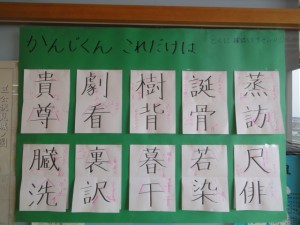 かんじくん これだけは
蒸訪
誕骨
樹背
劇看
貴尊
尺俳
若染
暮干
裏訳
臓洗